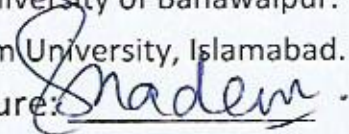 niversity of Bahawalpur.
m University, Islamabad.
ure: Nadeem.